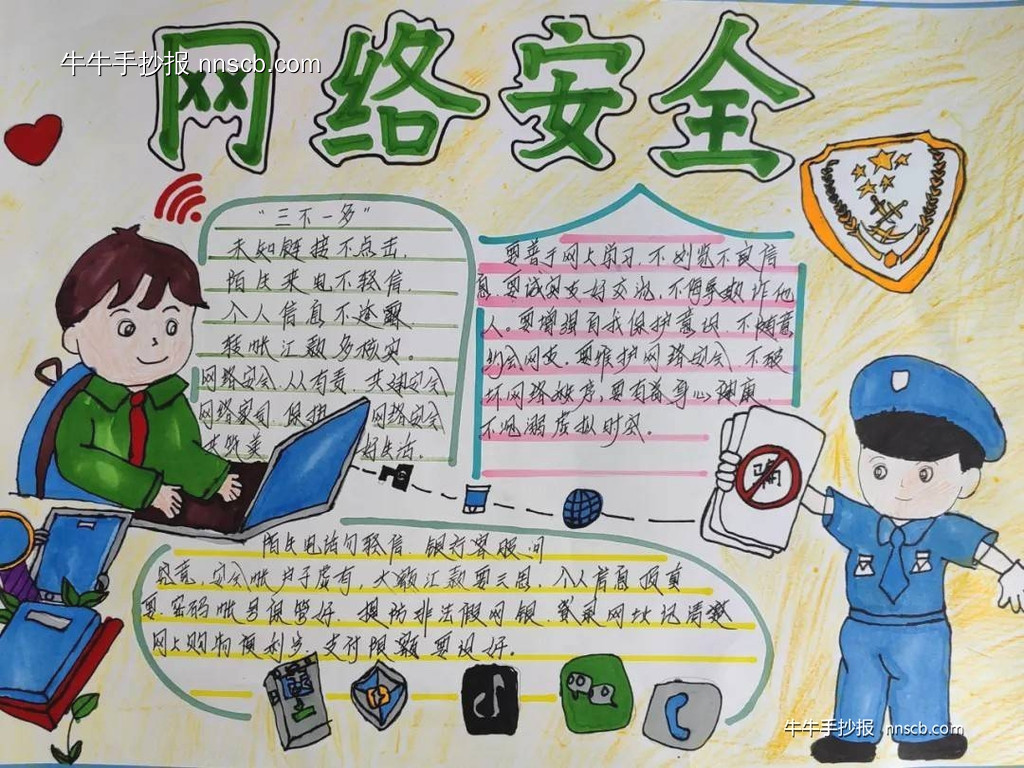 牛牛手抄报 nnscb.com
网络安全
“三不一多”
未知链接不点击,
陌生来电不轻信.
个人信息不透露
转帐汇款多核实。
网络安全,从有责.共建安全
网络家园.保护 网络安全
共筑美 好生活.
要善于网上学习.不浏览不良信
息.要诚实友好交流,不侮辱欺诈他
人。要增强自我保护意识.不随意
约会网友.要维护网络安全,不破
坏网络秩序,要有益身心健康,
不沉溺虚拟时空。
骗
陌生电话勿轻信.银行客服问
究竟,安全帐户子虚有,大额汇款要三思.个人信息
要.密码帐号保管好.提防非法假网银.登录网址记清楚
网上购物 支付限额要设好.
牛牛手抄报 nnscb.com